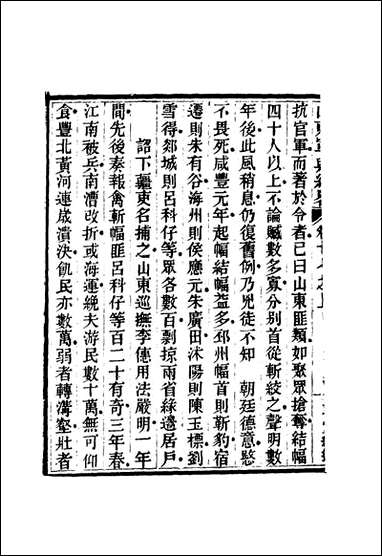 抗官軍而著於令者已曰山東匪類如聚眾搶奪結幅
四十人以上不論贓數多寡分别首從斬絞之聲明數
年後此風稍息仍復舊例乃兇徒不知　朝廷德意愍
不畏死咸豐元年起幅結幅益多邳州幅首則靳豹宿
遷則朱有谷海州則侯應元朱廣田沭陽則陳玉標劉
雪得郯城則呂科仔等眾各數百剽掠兩省緣邊居戶
詔下疆吏名捕之山東巡撫李僡用法嚴明一年
間先後奏報禽斬幅匪呂科仔等百二十有奇三年春
江南被兵南漕改折或海運縴夫游民數十萬無可仰
食豐北黃河連歲潰決飢民亦數萬弱者轉溝壑壯者